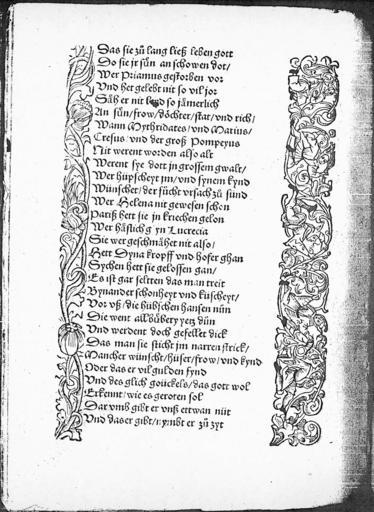 Das sie zů lang ließ leben gott
Do sie jr sün an schowen dot/
Wer Priamus gestorben vor
Vnd het gelebt nit so vil jor
Säh er nit leyd so jämerlich
An sün/frow/döchter/stat/vnd rich/
Wann Mythridates/vnd Marius/
Cresus vnd der groß Pompeyus
Nit werent worden also alt
Werent sye dott jn grossem gwalt/
Wer hüpscheyt jm/vnd synem kynd
Wünschet/der sücht vrsach zů sünd
Wer Helena nit gewesen schon
Pariß hett sie jn kriechen gelon
Wer häßlich gsyn Lucrecia
Sie wer geschmähet nit also/
Hett Dyna kropff vnd hofer ghan
Sychen hett sie gelossen gan/
Es ist gar seltten das man treit
Bynander schonheyt vnd küscheyt/
Vor vß/die hübschen hansen nün
Die went all bübery yetz dün
Vnd werdent doch gefellet dick
Das man sie sticht jm narren strick/
Mancher wünscht/hüser/frow/vnd kynd
Oder das er vil gulden fynd
Vnd des glich göuckels/das gott wol
Erkennt/wie es geroten sol
Dar vmb gibt er vnß ettwan nüt
Vnd das er gibt/nymbt er zů zyt